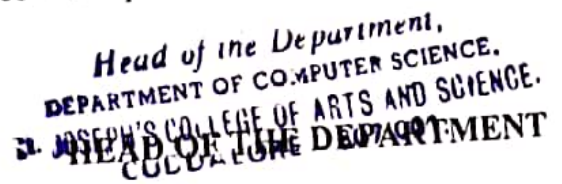 Head of the Department,
DEPARTMENT OF COMPUTER SCIENCE.
JOSEPH'S COLLEGE OF ARTS AND SCIENCE.
HEAD OF THE DEPARTMENT